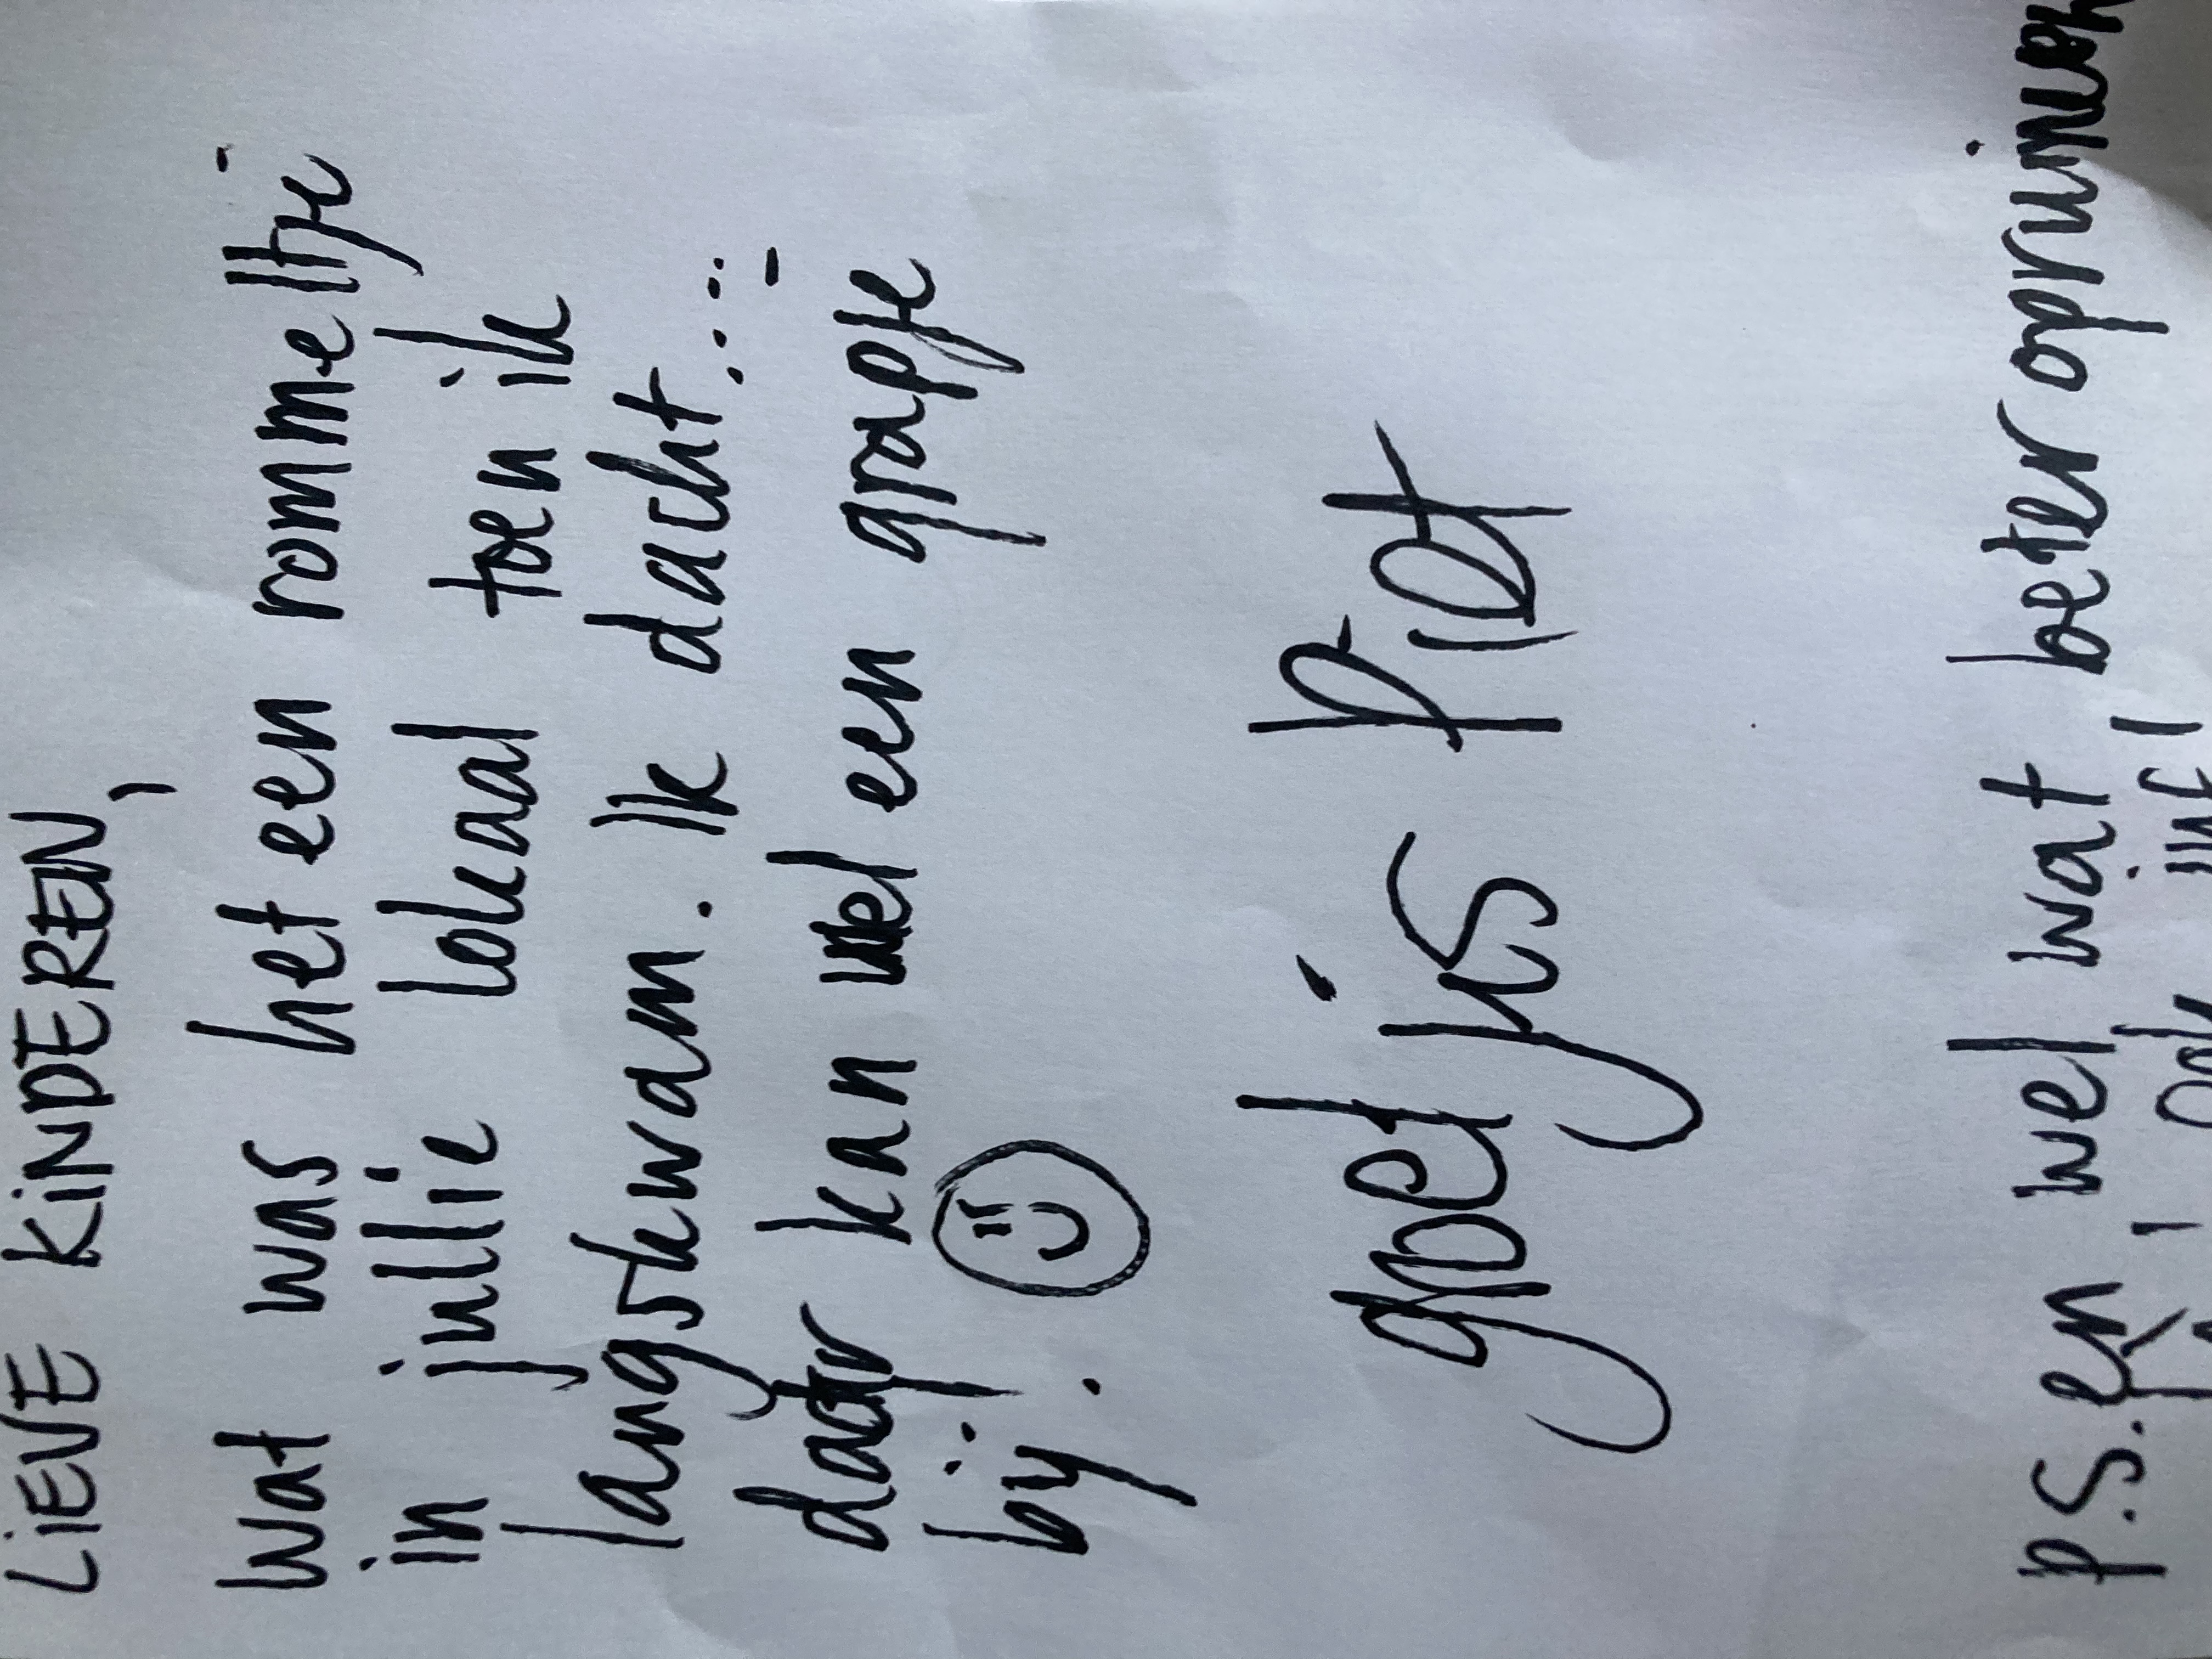 LIEVE KINDEREN,
Wat was het een rommeltje
in jullie lokaal toen ik
langskwam. Ik dacht....
daar kan wel een grapje
bij.
groetjes Piet
P.S. en, wel wat beter opruimen